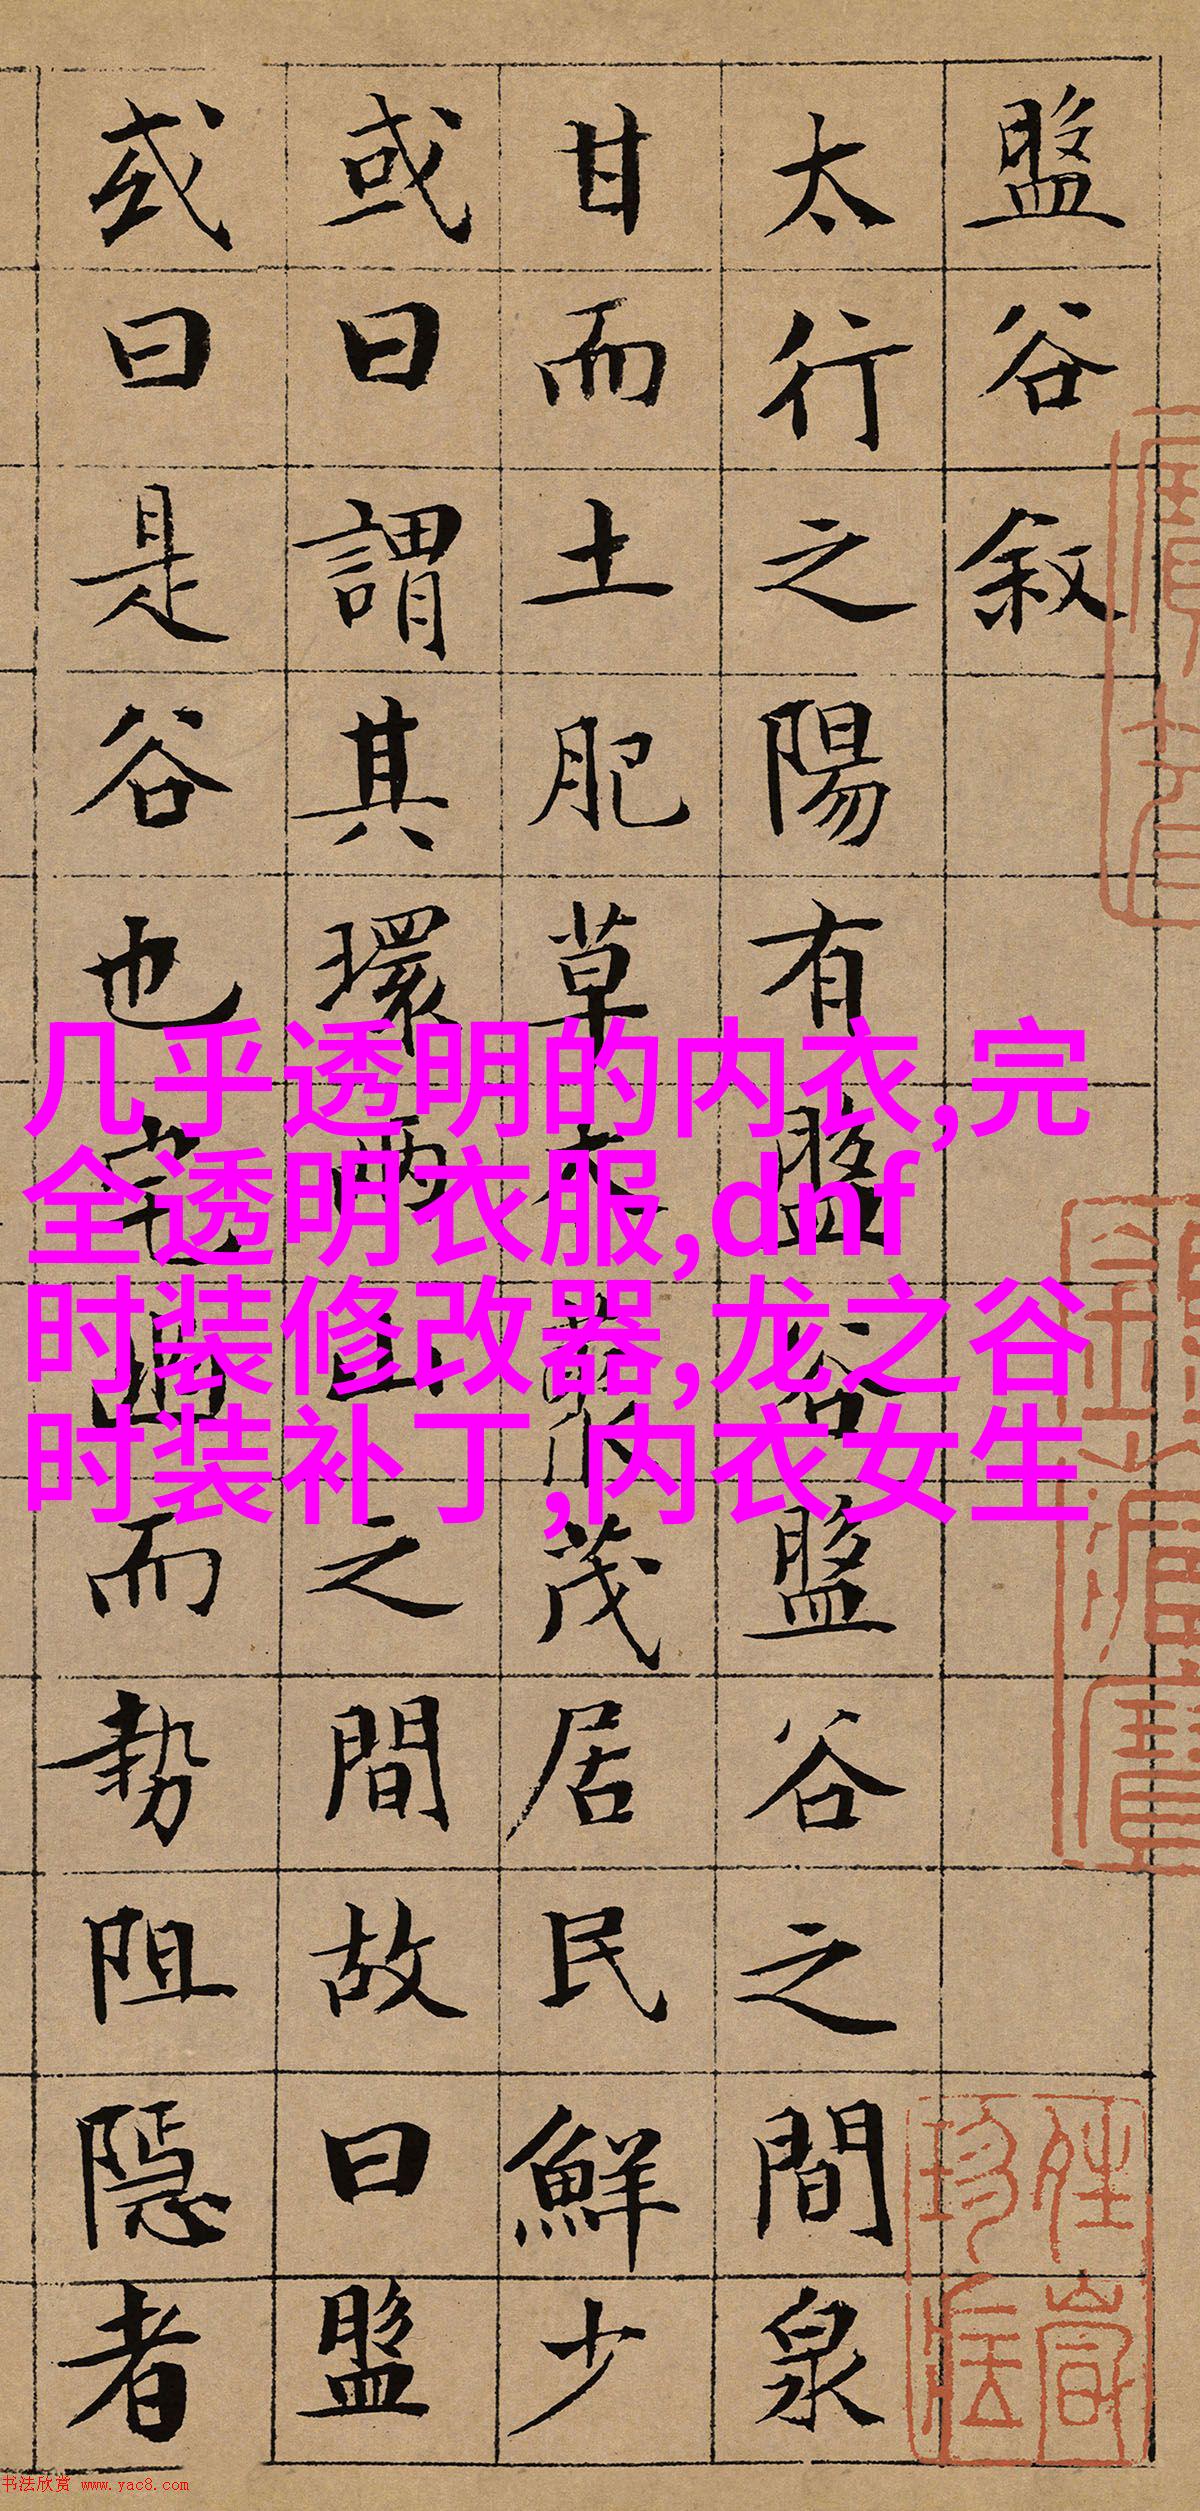 盤谷叙
太行之陽有盤谷盤谷之間泉
甘而土肥草木藂茂居民鮮少
或曰謂其環兩山之間故曰盤
或曰是谷也宅幽而勢阻隱者
几乎透明的内衣,完
全透明衣服,dnf
时装修改器,龙之谷
时装补丁,内衣女生
书法欣赏 www.yac8.com